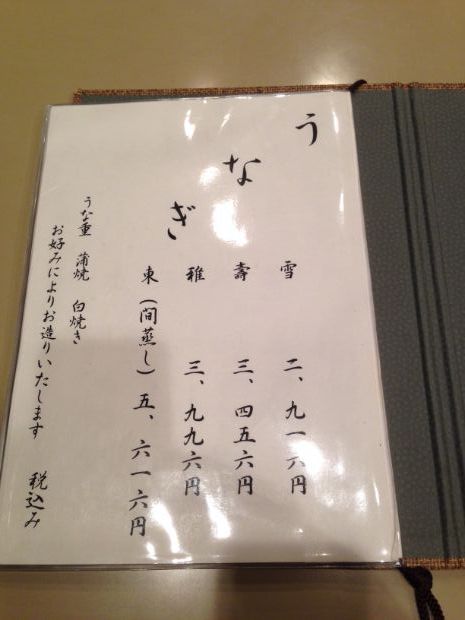 うなぎ
雪 二、九一六円
壽 三、四五六円
雅 三、九九六円
東（間蒸し）五、六一六円
うな重 蒲焼 白焼き
お好みによりお造りいたします 税込み